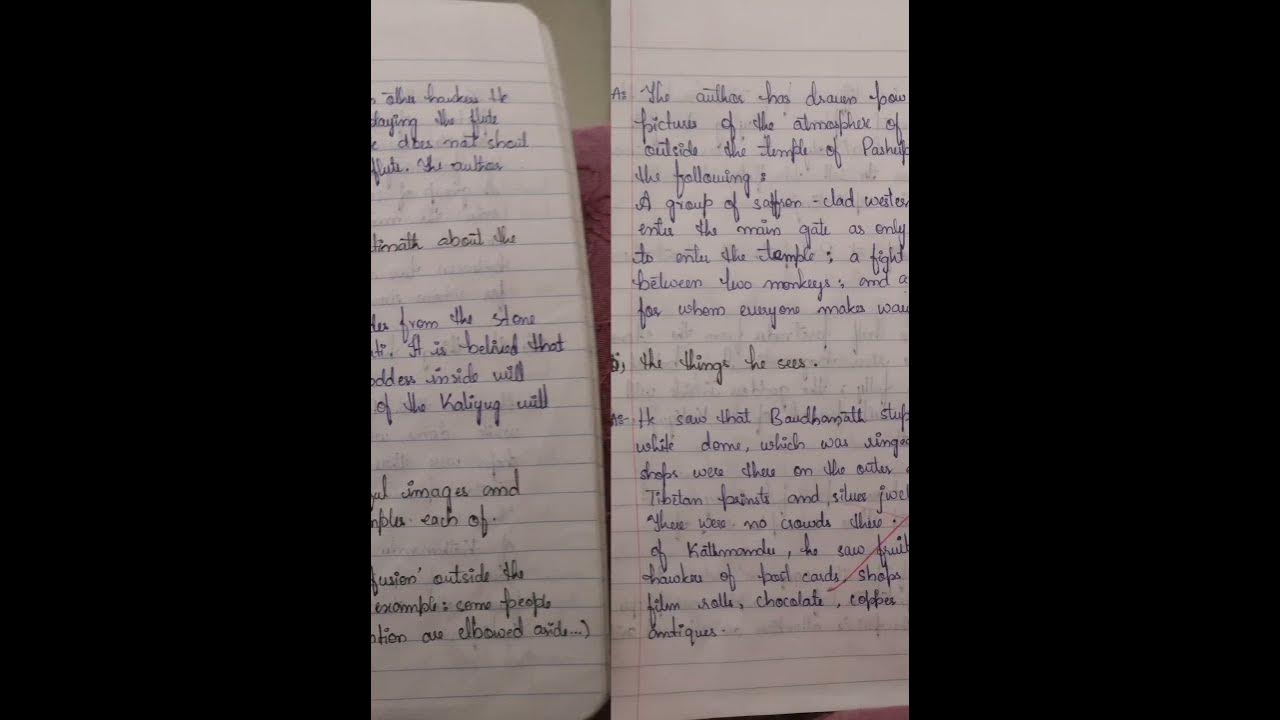 other hawkers He
playing the flute
does not shout
flute. The author
timath about the
from the stone
ti. It is belived that
oddess inside will
of the Kaliyug will
ful images and
mples each of.
fusion' outside the
example: some people
ption are elbowed aside...)
As The author has drawn pow
pictures of the atmosphere of
outside the temple of Pashup
the following:
A group of saffron-clad wester
enter the main gate as only
to enter the temple; a fight
between two monkeys; and a
for whom everyone makes way
the things he sees.
As- He saw that Baudhanath stup
white dome, which was ringe
shops were there on the outer
Tibetan prints and silver jwel
There were no crowds there.
of Kathmandu, he saw fruit
hawkers of post cards, shops
film rolls, chocolate, copper
antiques.